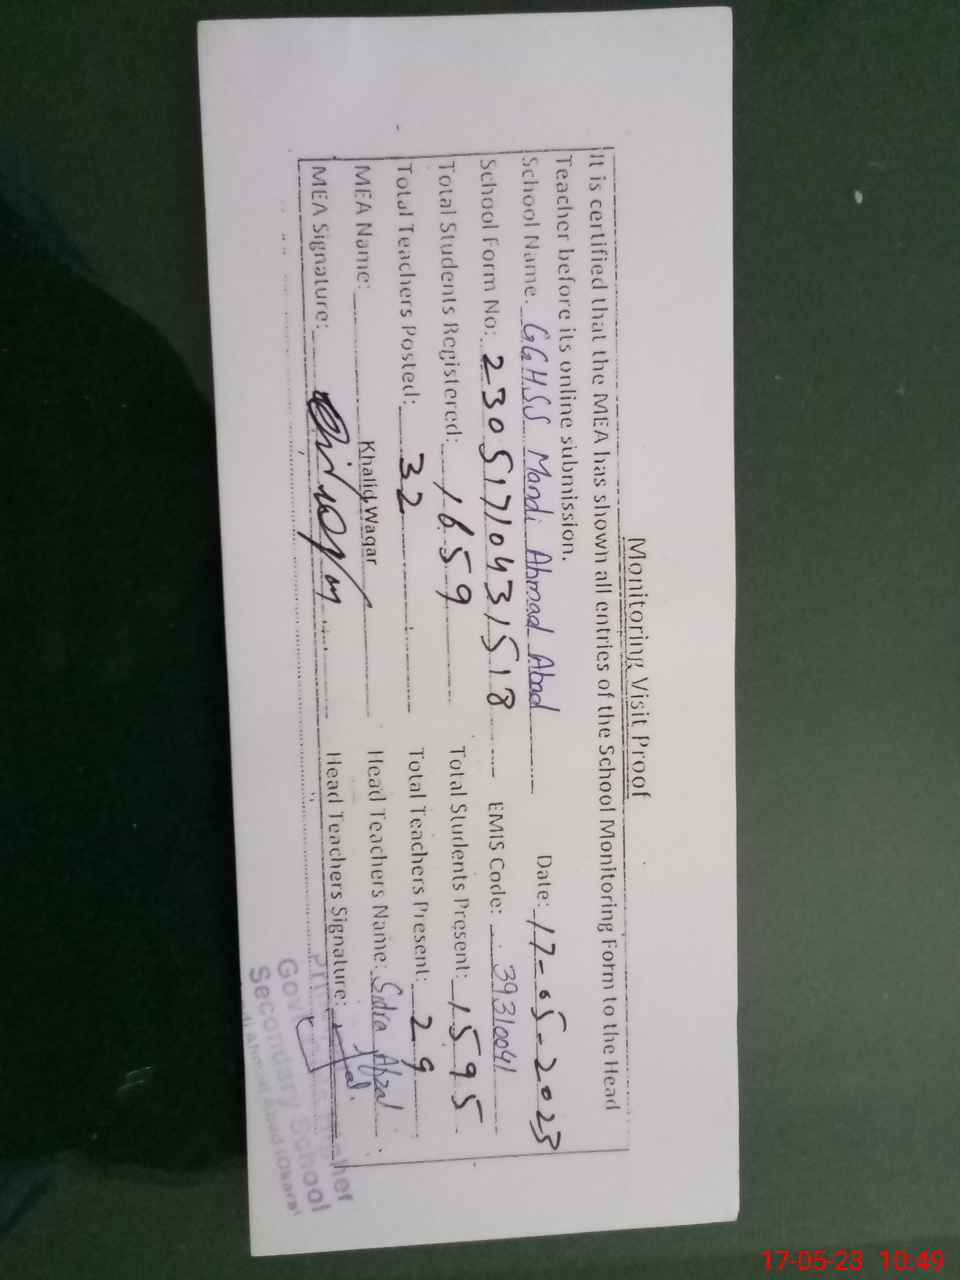 Monitoring Visit Proof
It is certified that the MEA has shown all entries of the School Monitoring Form to the Head
Teacher before its online submission.
School Name: GGHSS Mandi Ahmad Abad Date: 17-05-2023
School Form No: 23051710431518 EMIS Code: 39310041
Total Students Registered: 1659 Total Students Present: 1595
Total Teachers Posted: 32 Total Teachers Present: 29
MEA Name: Khalid Waqar Head Teachers Name: Sidra Afzal
MEA Signature: Head Teachers Signature:
Govt
Secondary School
17-05-23 10:49